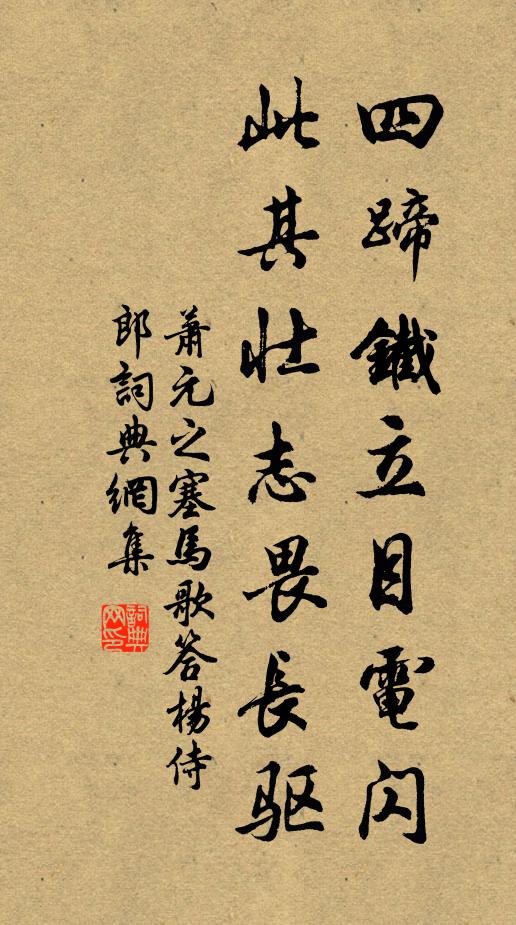 四蹄鐵立目電閃
此其壯志畏長驱
蕭元之塞馬歌答楊侍
郎詞典網集
詞典网印